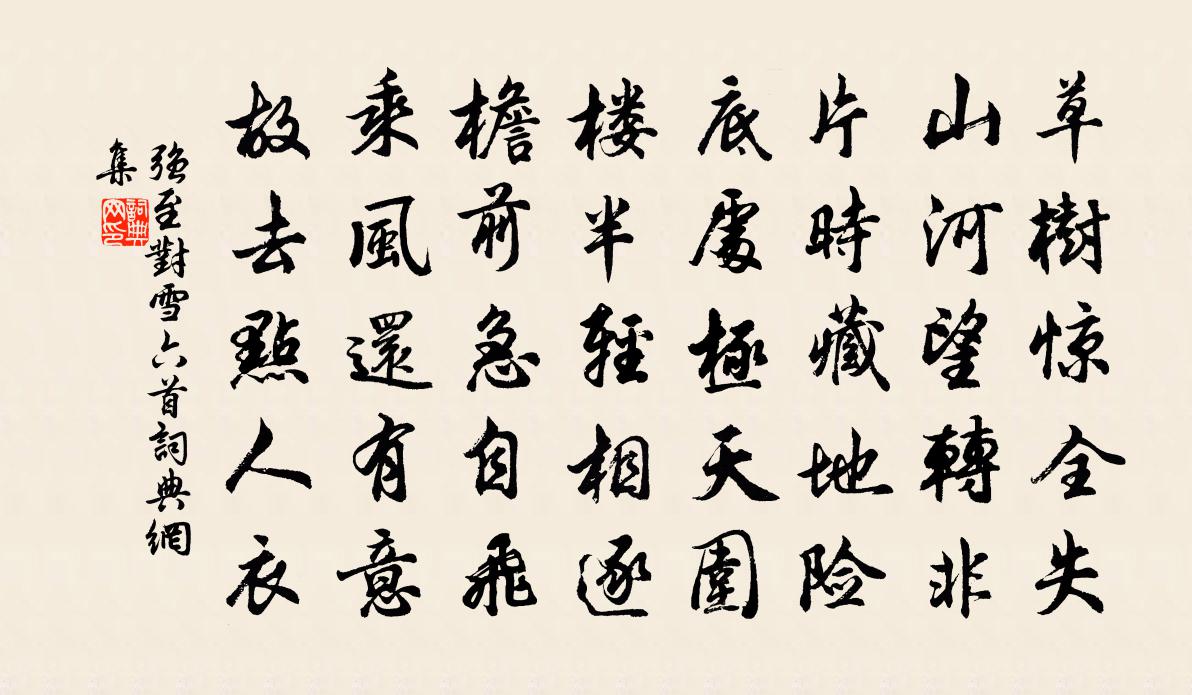 草樹惊全失
山河望轉非
片時藏地險
底處極天圍
楼半輕相逐
檐前急自飛
乘風還有意
故去點人衣
強至對雪六首詞典網
集
詞典
网印